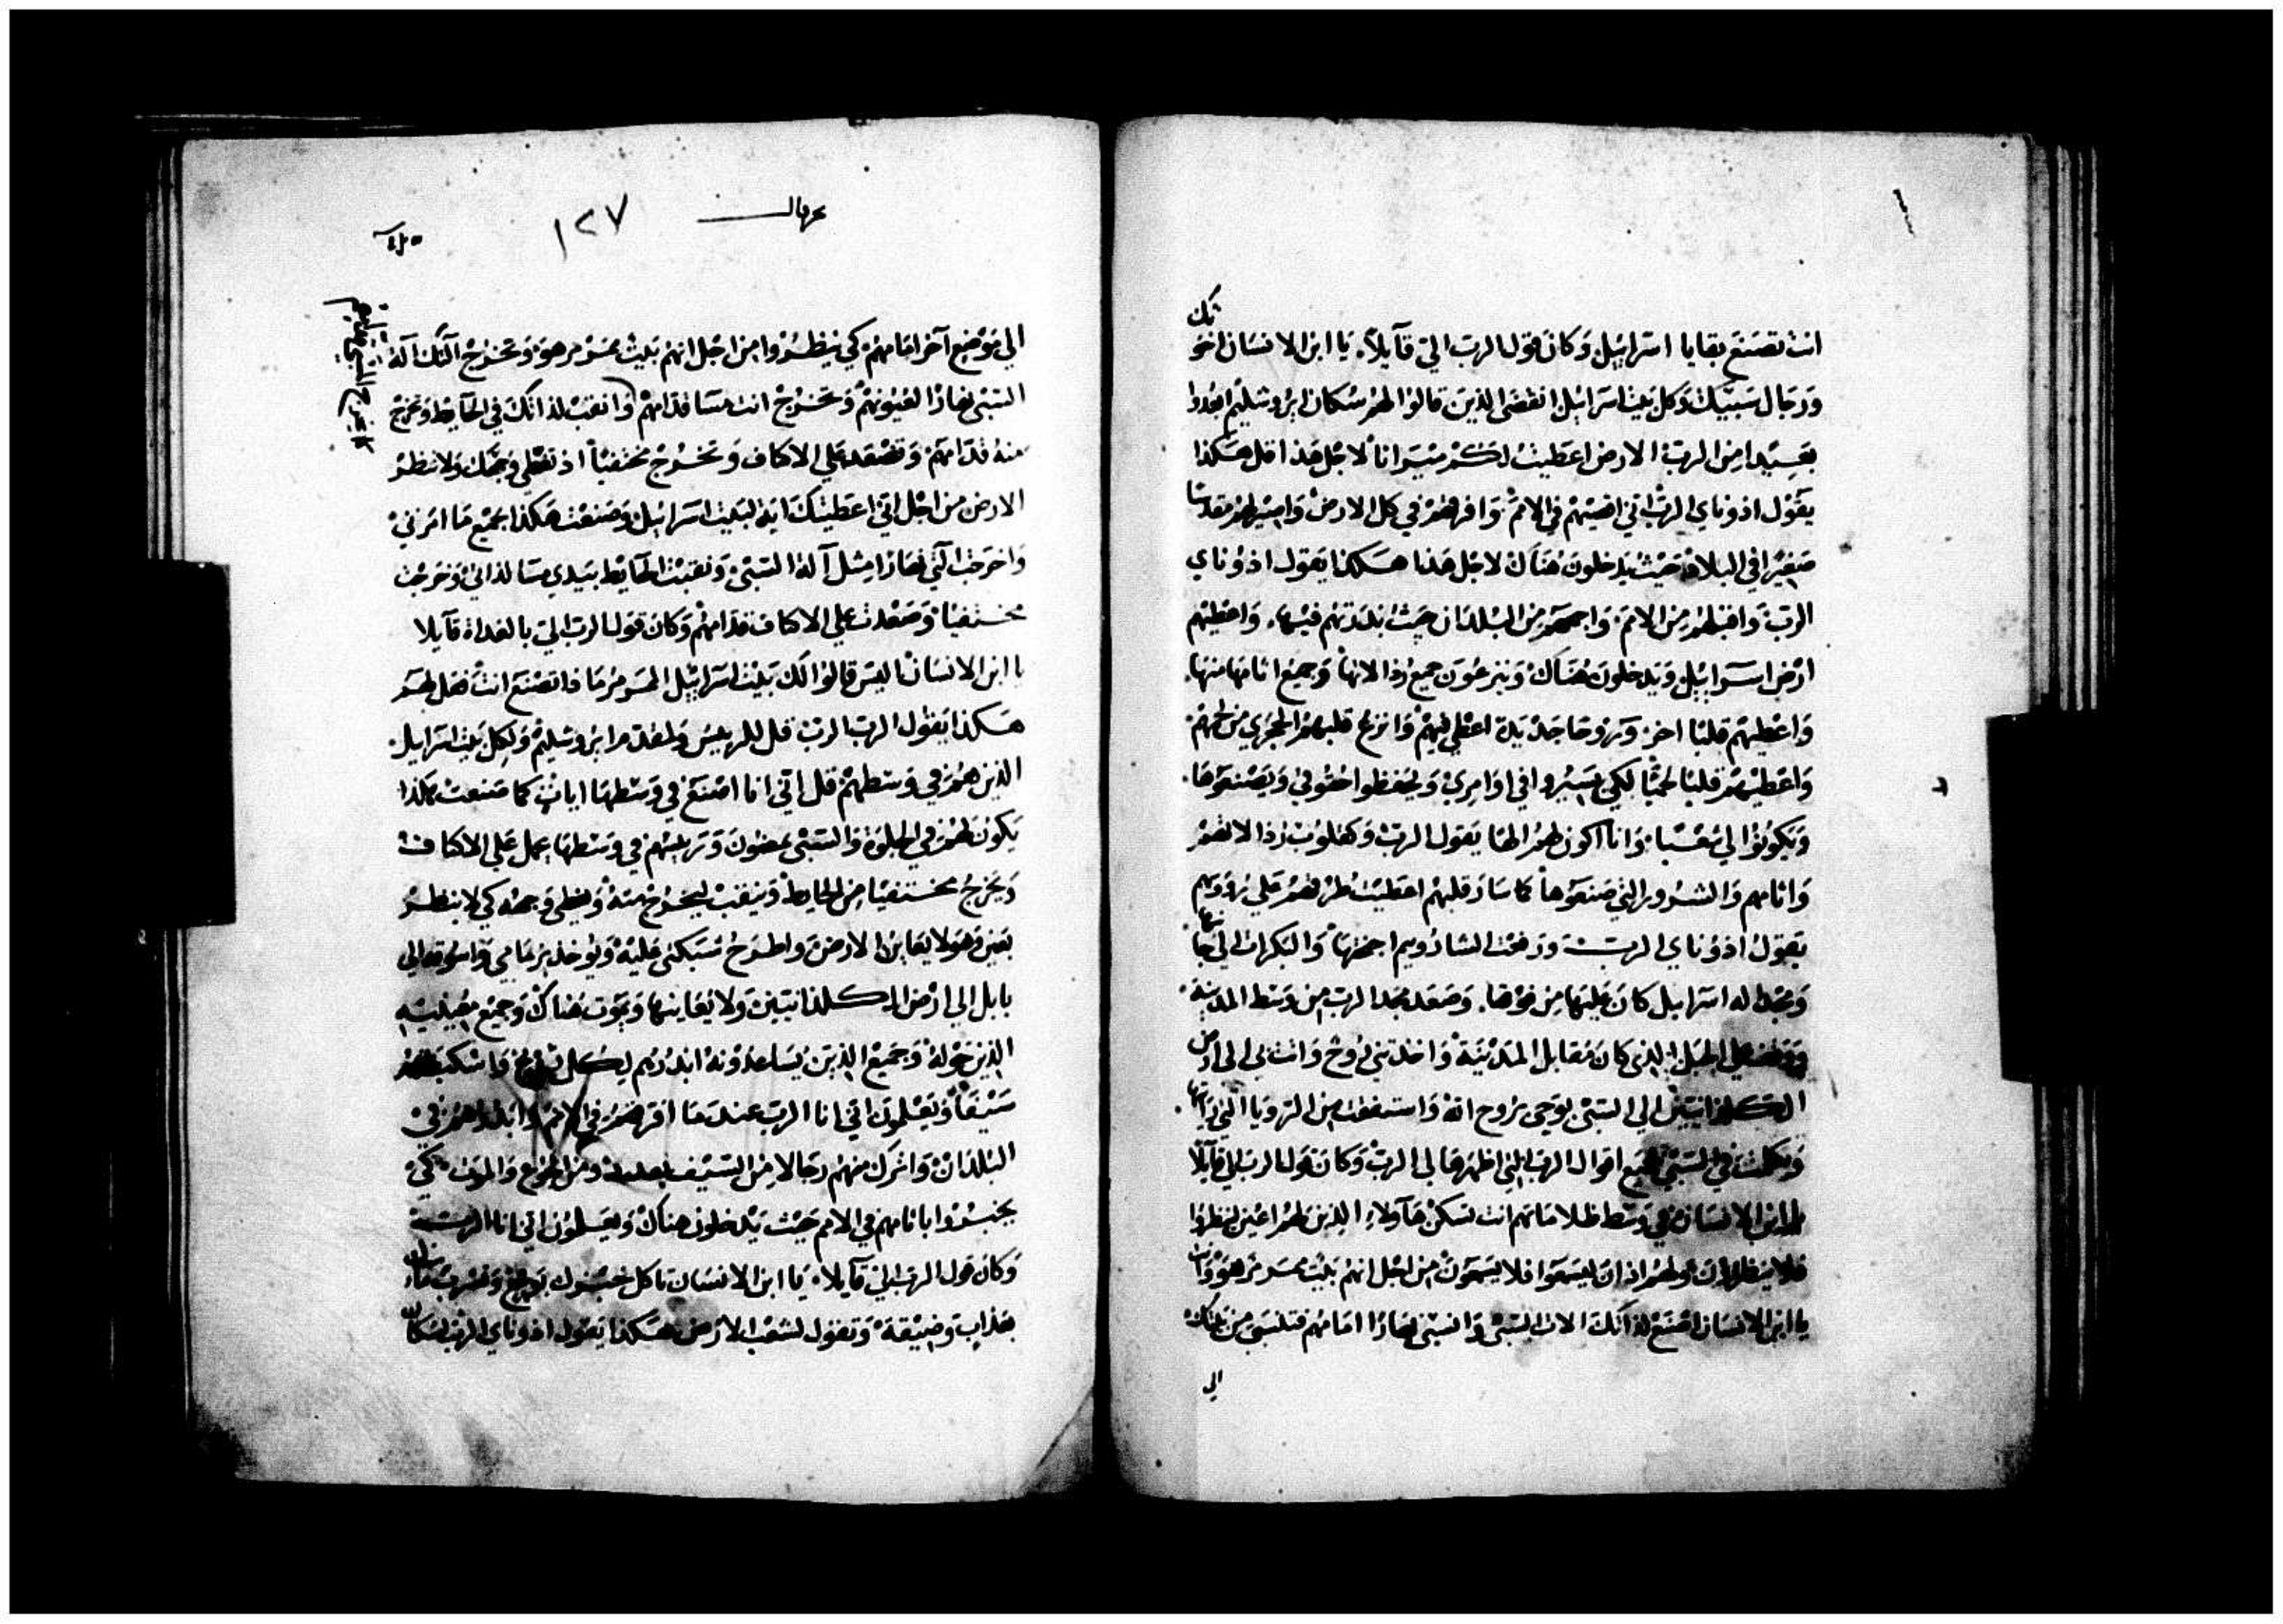 انت تصنع بقايا اسرائيل وكان قول الرب الي قآيلاً يا ابن الانسان اخو
تك
ورجال سبيك وكل بيت اسرائيل انقضى الذين قالوا لهم سكان ايروشليم ابعدوا
بعيدا من الرب الارض اعطيت لكم ميراناً لاجل هذا قل هكذا
يقول اذوناي الرب اني اقصيهم في الامم وافرقهم في كل الارض واصير لهم مقدسا
صغيرا في البلاد حيث يدخلون هناك لاجل هذا هكذا يقول اذوناي
الرب واقبلهم من الامم واجمعهم من البلدان حيث بددتهم فيها واعطيهم
ارض اسرائيل ويدخلون هناك وينزعون جميع رذالاتها وجميع اثامها منها
واعطيهم قلبا اخر وروحا جديدة اعطي فيهم وانزع قلبهم الحجري من لحمهم
واعطيهم قلبا لحميا لكي يسيروا في اوامري ويحفظوا حقوقي ويصنعوها
ويكونوا لي شعبا وانا اكون لهم الها يقول الرب وكقلوب رذالاتهم
واثامهم والشرور التي صنعوها كما سار قلبهم اعطيت طرقهم على رؤوسهم
يقول اذوناي الرب ورفعت الشاروبيم اجنحتها والبكرات الي جا
نبها
ومجد اله اسرائيل كان عليها من فوقها وصعد مجد الرب من وسط المدينة
ووقف على الجبل الذي كان مقابل المدينة واخذتني روح واتت بي الى ارض
الكلدانيين الي السبي بوحي بروح الله واستيقظت من الرويا التي رايتها
وتكلمت في السبي جميع اقوال الرب التي اظهرها لي الرب وكان قول الرب الي قآيلا
يا ابن الانسان في وسط ظلاماتهم انت تسكن هآولاء الذين لهم اعين لينظروا
فلا ينظرون ولهم اذان ليسمعوا فلا يسمعون من اجل انهم بيت متمرمر هو وانت
يا ابن الانسان اصنع لذاتك الات السبي وانسبى نهارا امامهم فتنسبى من مكانك
الي
١٢٧
الي موضع آخر امامهم كي ينظروا من اجل انهم بيت متمرمر هو وتخرج آلتك آلة
السبى نهارًا لعيونهم وتخرج انت مسا قدامهم وانقب لذاتك في الحايط وتخرج
منه قدامهم وتصعد على الاكتاف وتخرج مختفيا اذ تغطي وجهك ولا تنظر
الارض من اجل اني اعطيتك اية لبيت اسرائيل وصنعت هكذا جميع ما امرني
واخرجت آلتي نهارًا مثل آلة السبى ونقبت الحايط بيدي مسا لذاتي وخرجت
مختفيا وصعدت على الاكتاف قدامهم وكان قول الرب الي بالغداة قآيلا
يا ابن الانسان اليس قالوا لك بيت اسرائيل المتمرمر ماذا تصنع انت فقل لهم
هكذا يقول الرب الرب قل للرييس ولمقدم ايروشليم ولكل بيت اسرايل
الذين هم في وسطهم قل اني انا اصنع في وسطها ايات كما صنعت هكذا
يكون لهم في الجلوة والسبى يمضون ورييسهم في وسطها يحمل على الاكتاف
ويخرج مختفيا من الحايط وينقب ليخرج منه ويغطي وجهه كي لا ينظر
بعين وهو لا يعاين الارض واطرح شبكتي عليه ويوخذ برمامي واسوقه الي
بابل الي ارض الكلدانيين ولا يعاينها ويموت هناك وجميع معينيه
الذين حوله وجميع الذين يساعدونه ابددهم لكل ريح واسكب لهم
سيفاً ويعلمون اني انا الرب عند ما افرقهم في الامم وابددهم في
البلدان واترك منهم رجالا من السيف بعدد ومن الجوع والموت كي
يخبروا باثامهم في الامم حيث يدخلون هناك ويعلمون اني انا الرب
وكان قول الرب الي قآيلا يا ابن الانسان تاكل خبزك بوجع وتشرب ماك
بعذاب وضيقة وتقول لشعب الارض هكذا يقول اذوناي الرب لسكان